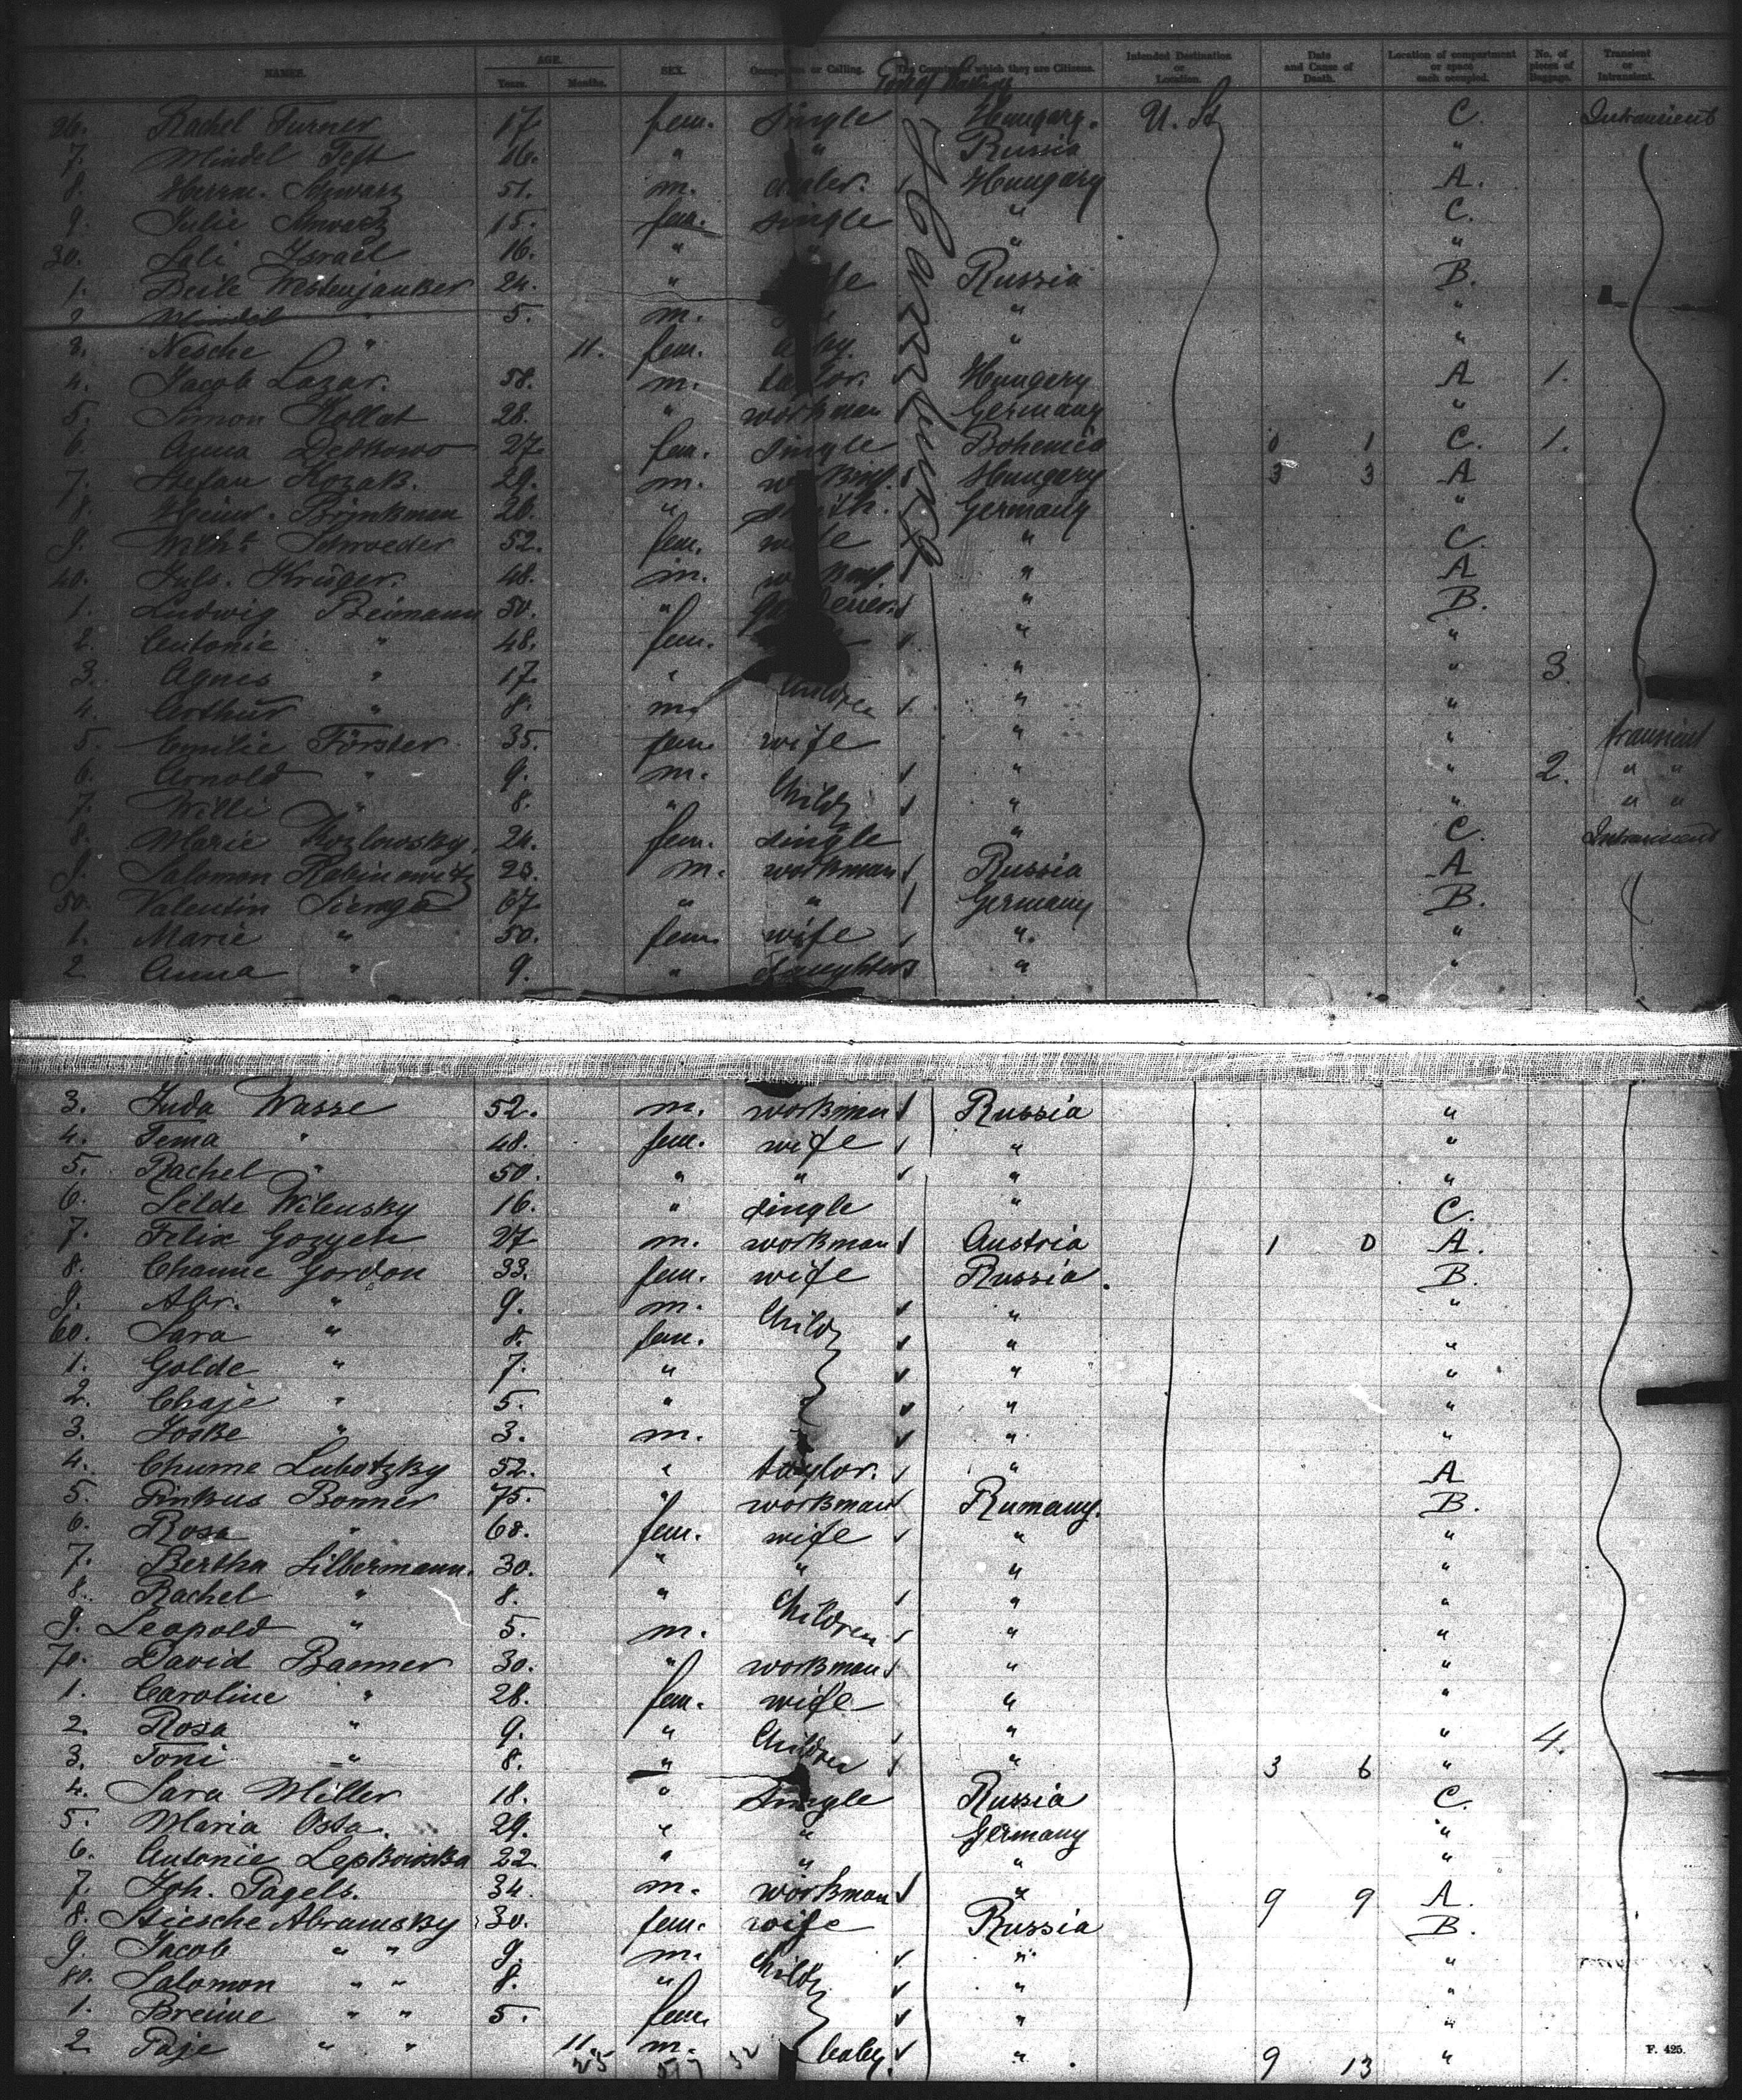 NAMES. AGE. Years. Months. SEX. Occupation or Calling. The Country of which they are Citizens. Intended Destination or Location. Date and Cause of Death. Location of compartment or space each occupied. No. of pieces of Baggage. Transient or Intransient.
26. Rachel Turner 17 fem. single Hungary. U. St C. Intransient
7. Mindel Teft 16. " " Russia "
8. Herm. Schwarz 51. m. Hungary A.
9. Julie Schwarz 15. fem. single " C.
30. Sali Israel 16. " " " "
1. Beile 24. " wife Russia B.
2. Mindel " 5. m. " "
3. Nesche " 11. fem. baby. " "
4. Jacob Lazar. 58. m. taylor. Hungary A 1.
5. Simon Kollat 28. " workman Germany "
6. Anna Deskowo 27. fem. single Bohemia 0 1 C. 1.
7. Stefan Kozak. 29. m. workm. Hungary 3 3 A
8. Heinr. Brinkman 26. " smith. Germany "
9. Wilh. Schroeder 52. fem. wife " C.
40. Krüger. 48. m. workm. " A
1. Ludwig Beimann 50. " gardener. " B.
2. Antonie " 48. fem. " "
3. Agnes " 17 " children " " 3.
4. Arthur " 8. m. " "
5. Emilie Förster 35. fem. wife " " transient
6. Arnold " 9. m. child " " 2. " "
7. Willi " 8. " " " " "
8. Marie Kozlowsky. 24. fem. single " C. Intransient
9. Salomon Rabinowitz 28. m. workman Russia A
50. Valentin Siemga 67 " " Germany B.
1. Marie " 50. fem. wife " "
2 Anna " 9. " daughter " "
3. Juda Wasse 52. m. workman Russia "
4. Tema " 48. fem. wife " "
5. Rachel " 50. " " " "
6. Selde Wilensky 16. " single " C.
7. Felix 27 m. workman Austria 1 0 A.
8. Channe Gordon 33. fem. wife Russia. B.
9. Abr. " 9. m. child " "
60. Sara " 8. fem. " "
1. Golde " 7. " " "
2. Chaje " 5. " " "
3. Joske " 3. m. " "
4. Chume Lubotzky 52. " taylor. " A
5. Pinkus Bonner 75. " workman Rumany. B.
6. Rosa " 68. fem. wife " "
7. Bertha Silbermann. 30. " " " "
8. Rachel " 8. " children " "
9. Leopold " 5. m. " "
70. David Banner 30. " workman " "
1. Caroline " 28. fem. wife " "
2. Rosa " 9. " children " " 4.
3. Toni " 8. " " 3 6 "
4. Sara Miller 18. " single Russia C.
5. Maria Osta. 29. " " Germany "
6. Antonie Lepkowska 22. " " " "
7. Joh. Pagels. 34. m. workman " 9 9 A.
8. Hiesche Abramsky 30. fem. wife Russia B.
9. Jacob " " 9. m. child " "
80. Salomon " " 8. " " "
1. Breine " " 5. fem. " "
2. Paje " " 11. m. baby. " 9 13 "
F. 425.